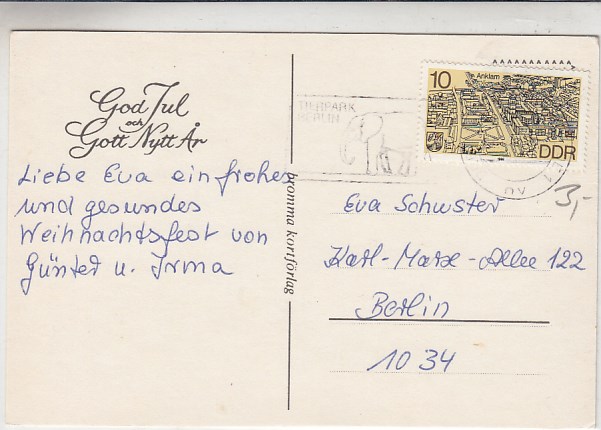 God Jul
och
Gott Nytt År
Liebe Eva ein frohes
und gesundes
Weihnachtsfest von
Günter u. Irma
bromma kortförlag
TIERPARK
BERLIN
10
Anklam
DDR
3,-
Eva Schuster
Karl-Marx-Allee 122
Berlin
1034